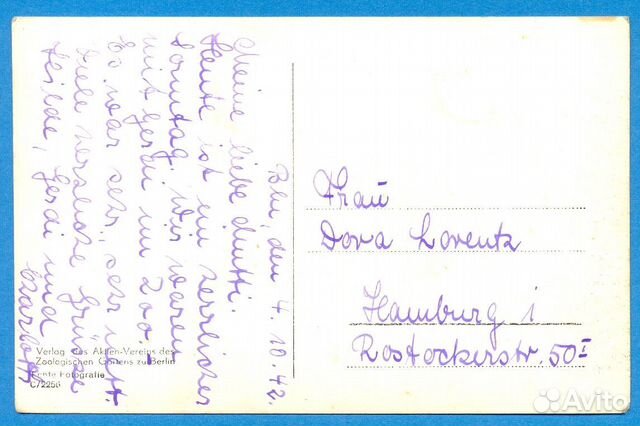 Bln, den 4. 10. 42.
Meine liebe Mutti.
Heute ist ein herrlicher
Sonntag. Wir waren
mit Gerdi im Zoo.
Es war sehr, sehr nett.
Viele herzliche Grüsse
Hilde, Gerdi und
Frau
Dora Lorentz
Hamburg 1
Rostockerstr. 50 I
Verlag des Aktien-Vereins des
Zoologischen Gartens zu Berlin
Echte Fotografie
C/2256
Avito